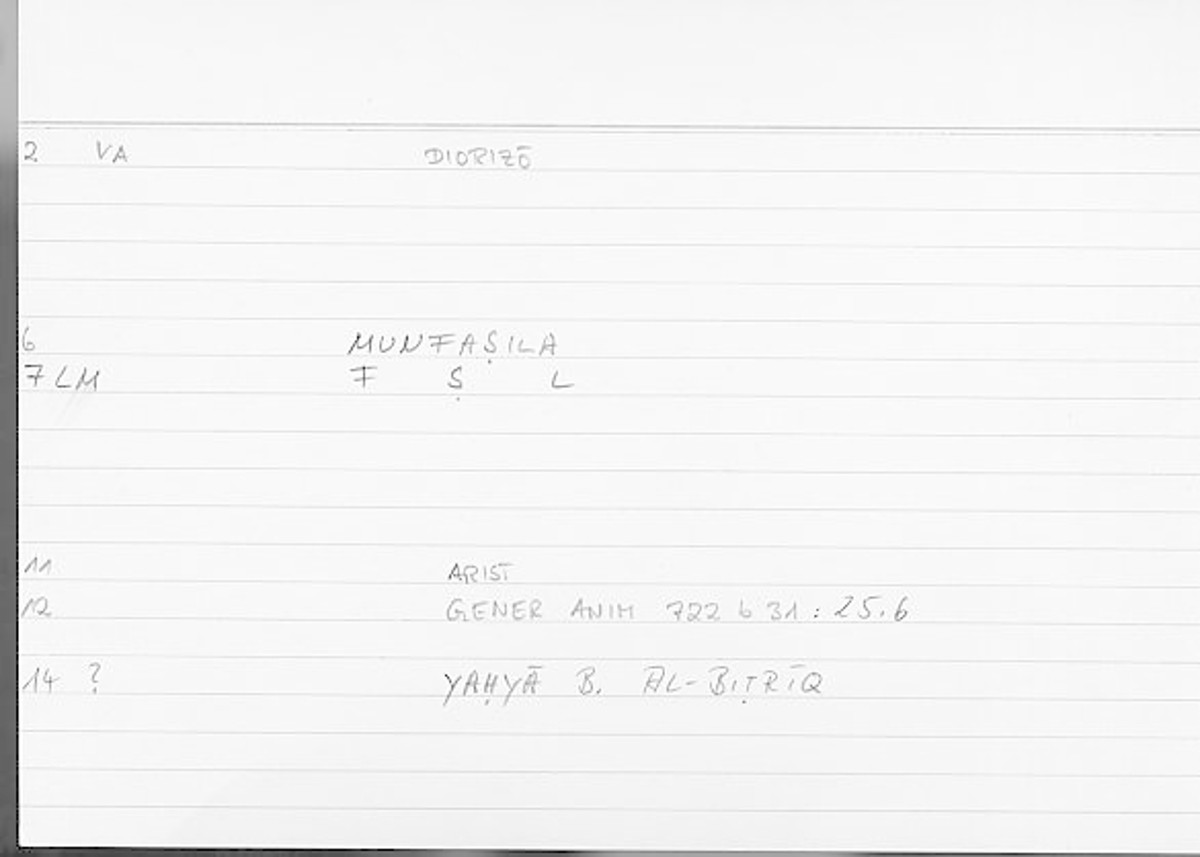 2 VA DIORIZŌ
6 MUNFAṢILA
7 LM F Ṣ L
11 ARIST
12 GENER ANIM 722 b 31 : 25.6
14 ? YAḤYĀ B. AL-BIṬRĪQ